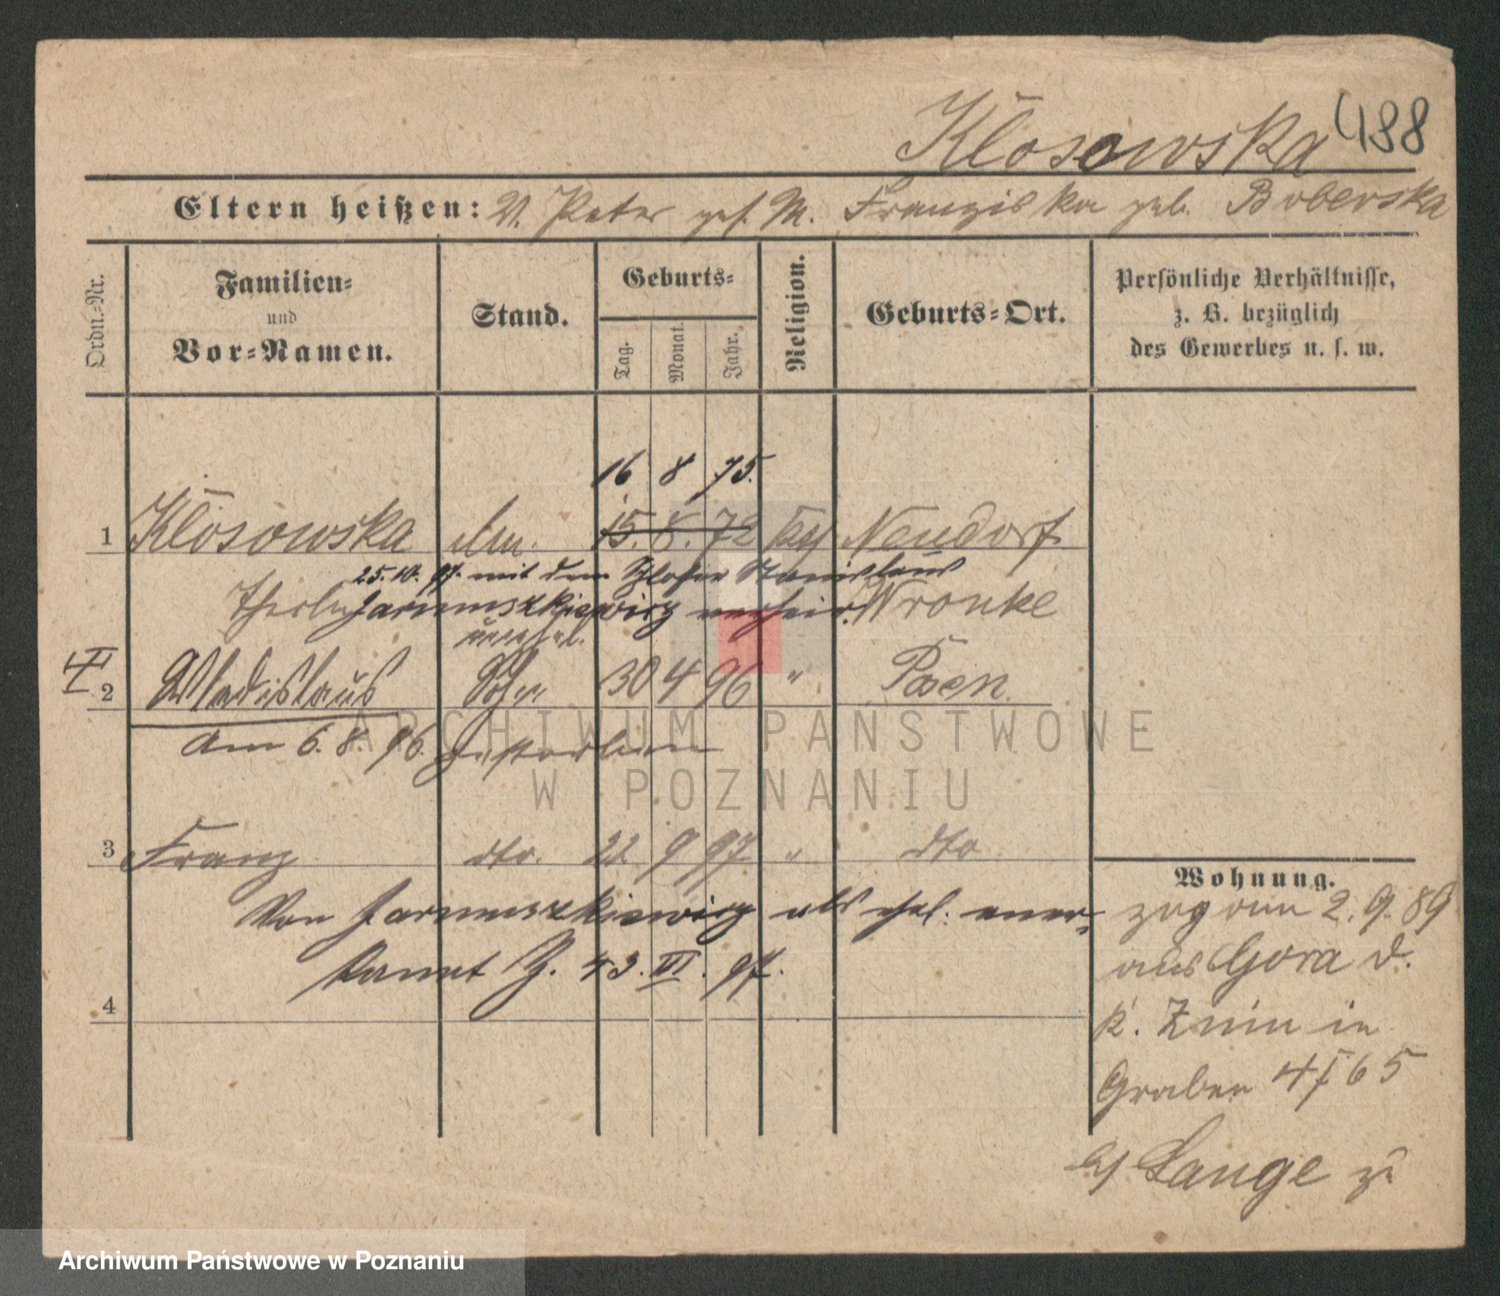 Klosowska 488
Eltern heißen: V. Peter gest. M. Franziska geb. Boberska
Ordn.-Nr.
Familien-
und
Vor-Namen.
Stand.
Geburts-
Tag.
Monat.
Jahr.
Religion.
Geburts-Ort.
Persönliche Verhältnisse,
z. B. bezüglich
des Gewerbes u. s. w.
16 8 75.
1 Klosowska 15. 8. 72 kath Neudorf
25. 10. 97. mit dem Schlosser Stanislaus
Jarmuszkiewicz verheir. Wronke
unehel.
2 Wladislaus Sohn 30 4 96 " Posen
am 6. 8. 96 gestorben
3 Franz dto. 22 9 97 " dto
Von Jarmuszkiewicz als ehel. aner-
kannt J. 43. III. 97.
4
Wohnung.
zug am 2. 9. 89
aus Gora d.
K. Znin in
Graben 4 I 65
b/ Lange zu
ARCHIWUM PAŃSTWOWE
W POZNANIU
Archiwum Państwowe w Poznaniu